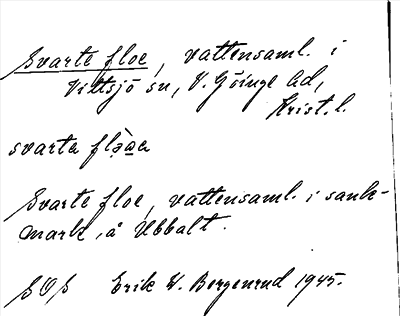 Svarte floe, vattensaml. i
Vittsjö sn, V. Göinge hd,
Krist. l.
svarta flò̧a̱a
Svarte floe, vattensaml. i sank-
mark, å Ubbalt.
SOS Erik W. Bergenrud 1945.